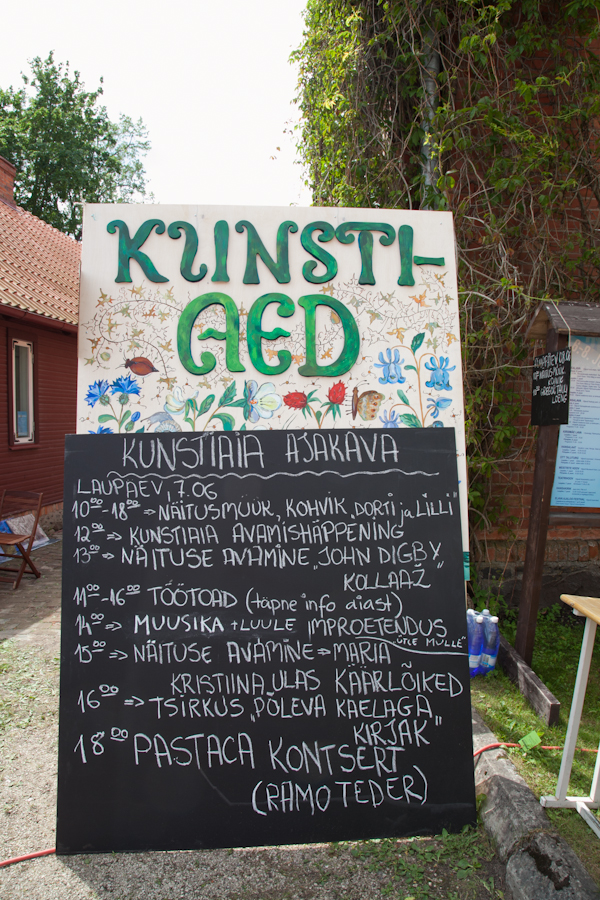 KUNSTI-
AED
KUNSTIAIA AJAKAVA
LAUPÄEV, 7.06
10⁰⁰-18⁰⁰ ⇒ NÄITUSMÜÜK, KOHVIK „DORTI ja LILLI"
12⁰⁰ ⇒ KUNSTIAIA AVAMISHÄPPENING
13⁰⁰ ⇒ NÄITUSE AVAMINE „JOHN DIGBY
KOLLAAŽ"
11⁰⁰-16⁰⁰ TÖÖTOAD (täpne info aiast)
14⁰⁰ ⇒ MUUSIKA + LUULE IMPROETENDUS
"ÜTLE MULLE"
15⁰⁰ ⇒ NÄITUSE AVAMINE ⇒ MARIA
KRISTIINA ULAS KÄÄRLÕIKED
16⁰⁰ ⇒ TSIRKUS „PÕLEVA KAELAGA
KIRJAK"
18⁰⁰ PASTACA KONTSERT
(RAMO TEDER)